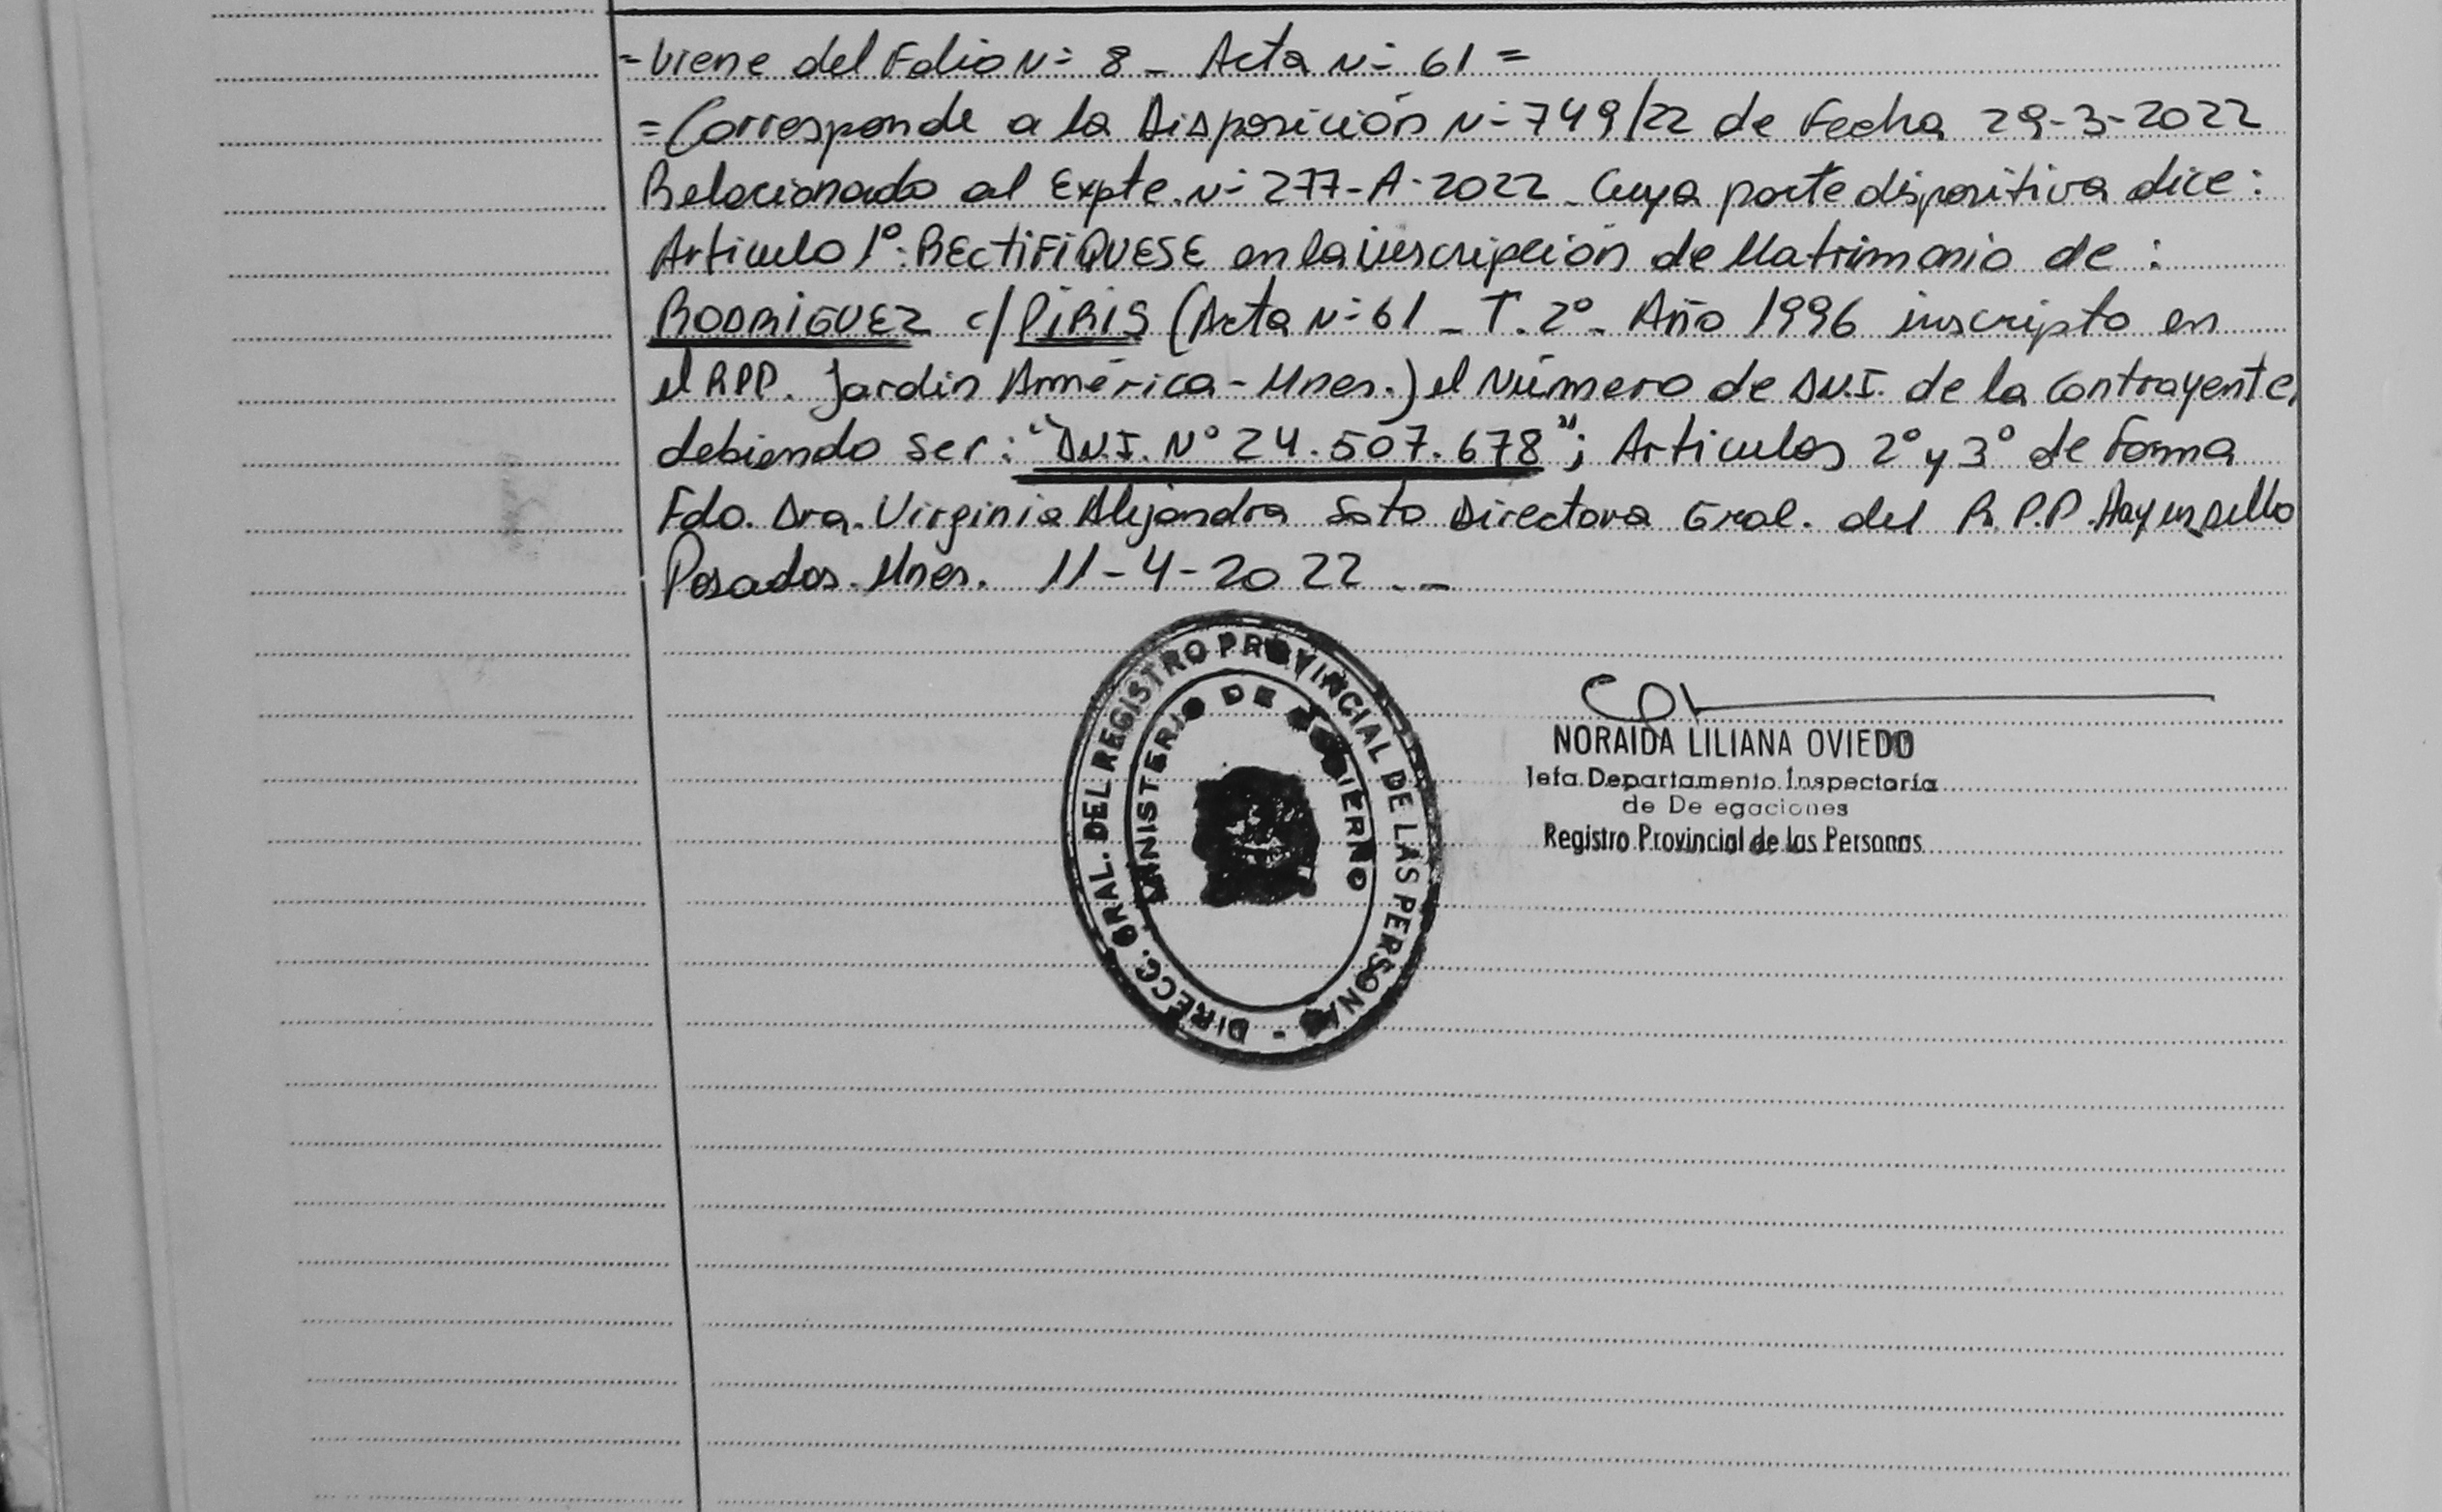 = Viene del Folio N= 8 - Acta N= 61 =
= Corresponde a la Disposición N= 749/22 de Fecha 29-3-2022
Relacionado al Expte. N= 277-A-2022 - Cuya parte dispositiva dice:
Articulo 1º: RECTIFIQUESE en la inscripción de Matrimonio de :
RODRIGUEZ c/ PIRIS (Acta N=61 - T. 2º - Año 1996 inscripto en
el RPP. Jardín América - Mnes.) el Número de D.N.I. de la Contrayente,
debiendo ser: "D.N.I. Nº 24.507.678"; Articulos 2º y 3º de Forma
Fdo. Dra. Virginia Alejandra Soto Directora Gral. del R.P.P. Hay un sello
Posadas. Mnes. 11-4-2022 . -
DIRECC. GRAL. DEL REGISTRO PROVINCIAL DE LAS PERSONAS -
MINISTERIO DE GOBIERNO
NORAIDA LILIANA OVIEDO
Jefa Departamento Inspectoría
de De egaciones
Registro Provincial de las Personas